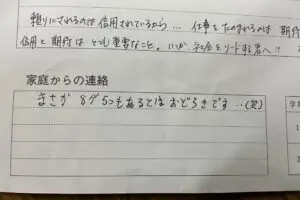 頼りにされるのは信用されているから… 仕事をたのまれるのは 期待
信用と期待は とても重要なこと。いつか、社会をリードする男へ!!
家庭からの連絡
まさか 8が5つもあるとは おどろきです…(笑)
学